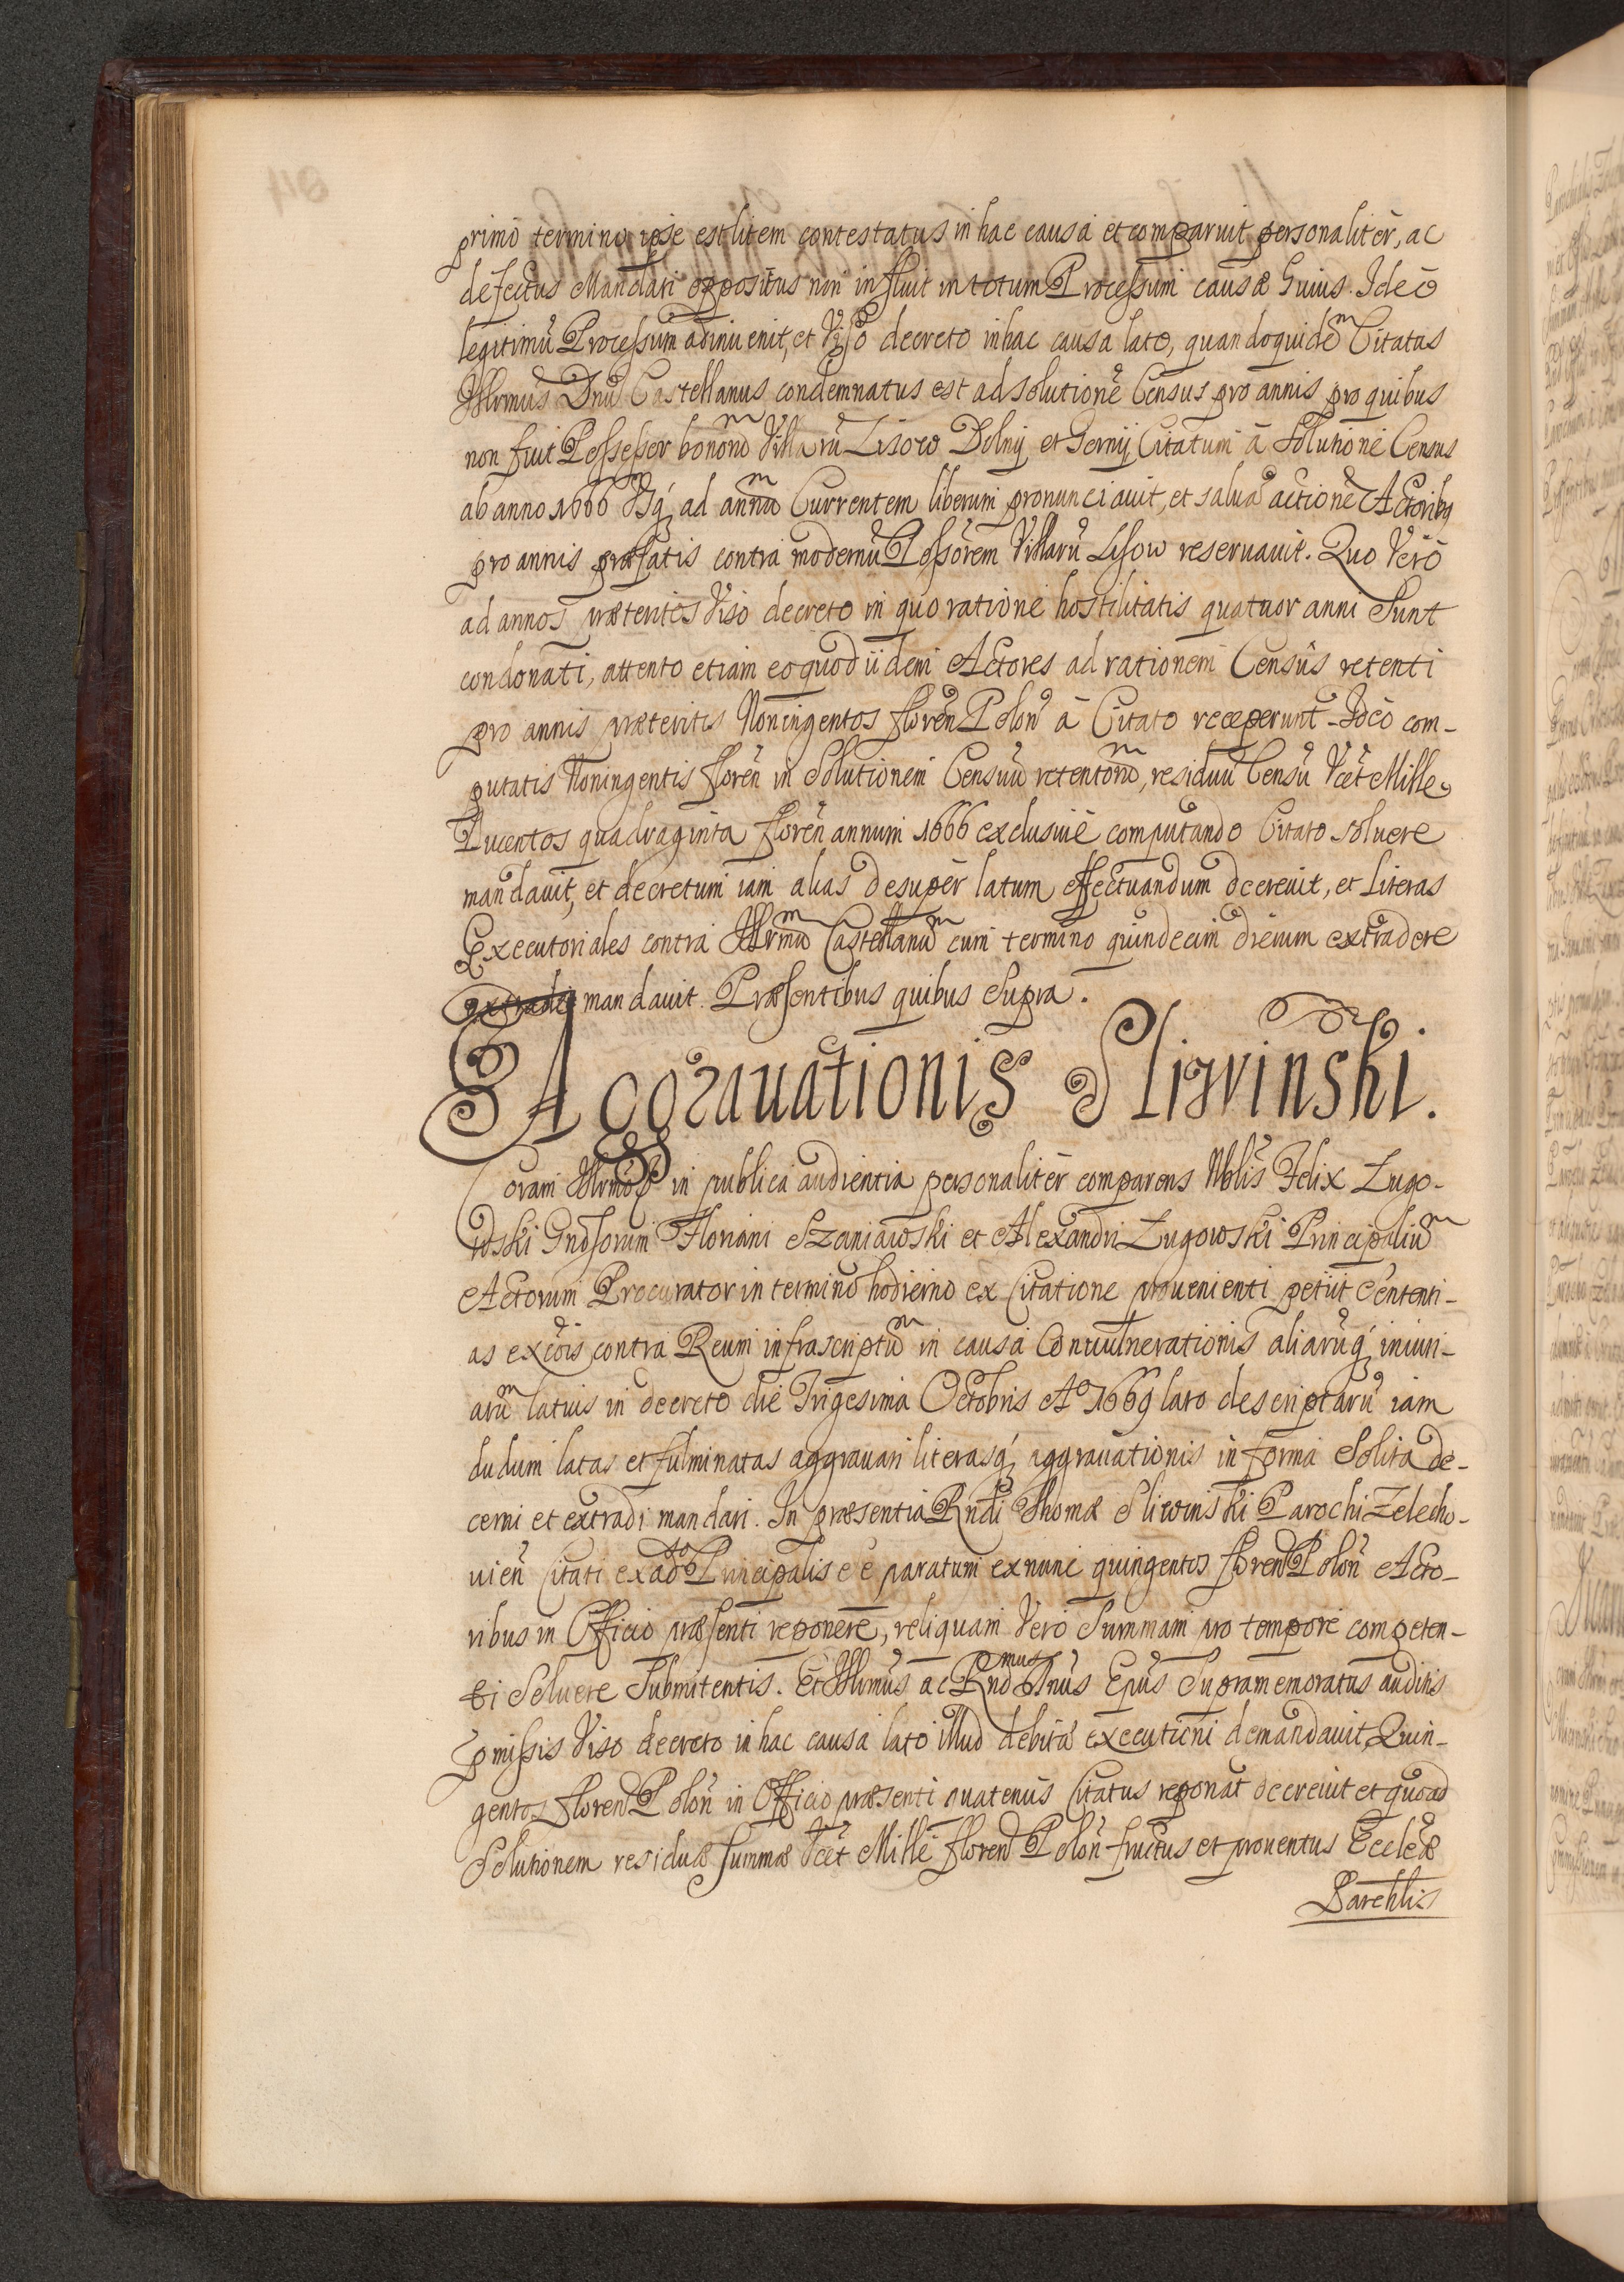 primo termino ipse est litem contestatus in hac causa et comparuit personaliter, ac
defectus Mandati oppositus non influit in totum Processum causæ huius. Ideo
legitimū Processum adinuenit, et Viso decreto in hac causa lato, quandoquidē Citatus
Illrmus Dnus Castellanus condemnatus est ad solutionē Census pro annis pro quibus
non fuit Possessor bonorū Villarū Lisow Dolny et Gorny Citatum à solutione Census
ab anno 1666 Vsq̃ ad annū Currentem liberum pronunciauit, et salua actione Actoribq
pro annis præfatis contra modernū Possorem Villarū Lisow reseruauit. Quo Vero
ad annos præteritos Viso decreto in quo ratione hostilitatis quatuor anni sunt
condonati, attento etiam eo quod iidem Actores ad rationem Census retenti
pro annis præteritis Noningentos floren Polon à Citato receperunt. Ideo com-
putatis Noningentis floren in solutionem Censuū retentorū, residuū Censū Vcet Mille
Ducentos quadraginta floren annum 1666 exclusiuè computando Citato soluere
mandauit, et decretum iam alias desuper latum effectuandum decreuit, et Literas
Executoriales contra Illrmū Castellanū cum termino quindecim dierum extradere
extradi mandauit. Præsentibus quibus supra.
Aggrauationis Sliwinski.
Coram Illrmo in publica audientia personaliter comparens Nblis Felix Lugo-
wski Gnosorum Floriani Szaniawski et Alexandri Lugowski Principaliū
Actorum Procurator in termino hodierno ex Citatione prouenienti petiit sententi-
as excōis contra Reum infrascriptū in causa Conuulnerationis aliarūq̃ iniuri-
arū latius in decreto die Trigesima Octobris Aº 1669 lato descriptarū iam
dudum latas et fulminatas aggrauari literasq̃ aggrauationis in forma solita de-
cerni et extradi mandari. In præsentia Rndi Thomæ Sliwinski Parochi Zelecho-
uien Citati ex ado Principalis ēē paratum ex nunc quingentos floren Polon Acto-
ribus in Officio præsenti reponere, reliquam Vero summam pro tempore competen-
ti soluere submitentis. Et Illrmus ac Rndmus Dnus Epus supramemoratus auditis
pmissis Viso decreto in hac causa lato illud debitæ executioni demandauit, Quin-
gentos floren Polon in Officio præsenti quatenus Citatus reponat decreuit et quoad
solutionem residuæ summæ Vcet Mille floren Polon fructus et prouentus Eccleæ
Parchlis